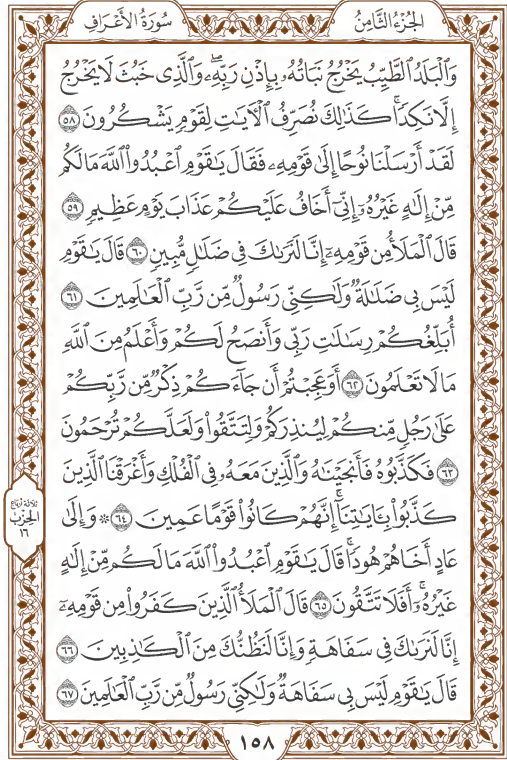 الجُزْءُ الثَّامِنُ
سُورَةُ الأَعْرَافِ
وَالْبَلَدُ الطَّيِّبُ يَخْرُجُ نَبَاتُهُۥ بِإِذْنِ رَبِّهِۦۖ وَالَّذِى خَبُثَ لَا يَخْرُجُ
إِلَّا نَكِدًاۚ كَذَٰلِكَ نُصَرِّفُ الْآيَٰتِ لِقَوْمٍ يَشْكُرُونَ ٥٨
لَقَدْ أَرْسَلْنَا نُوحًا إِلَىٰ قَوْمِهِۦ فَقَالَ يَٰقَوْمِ اعْبُدُوا۟ اللَّهَ مَا لَكُم
مِّنْ إِلَٰهٍ غَيْرُهُۥٓ إِنِّىٓ أَخَافُ عَلَيْكُمْ عَذَابَ يَوْمٍ عَظِيمٍ ٥٩
قَالَ الْمَلَأُ مِن قَوْمِهِۦٓ إِنَّا لَنَرَىٰكَ فِى ضَلَٰلٍ مُّبِينٍ ٦٠ قَالَ يَٰقَوْمِ
لَيْسَ بِى ضَلَٰلَةٌ وَلَٰكِنِّى رَسُولٌ مِّن رَّبِّ الْعَٰلَمِينَ ٦١
أُبَلِّغُكُمْ رِسَٰلَٰتِ رَبِّى وَأَنصَحُ لَكُمْ وَأَعْلَمُ مِنَ اللَّهِ
مَا لَا تَعْلَمُونَ ٦٢ أَوَعَجِبْتُمْ أَن جَآءَكُمْ ذِكْرٌ مِّن رَّبِّكُمْ
عَلَىٰ رَجُلٍ مِّنكُمْ لِيُنذِرَكُمْ وَلِتَتَّقُوا۟ وَلَعَلَّكُمْ تُرْحَمُونَ
٦٣ فَكَذَّبُوهُ فَأَنجَيْنَٰهُ وَالَّذِينَ مَعَهُۥ فِى الْفُلْكِ وَأَغْرَقْنَا الَّذِينَ
كَذَّبُوا۟ بِـَٔايَٰتِنَآۚ إِنَّهُمْ كَانُوا۟ قَوْمًا عَمِينَ ٦٤ ۞ وَإِلَىٰ
عَادٍ أَخَاهُمْ هُودًاۗ قَالَ يَٰقَوْمِ اعْبُدُوا۟ اللَّهَ مَا لَكُم مِّنْ إِلَٰهٍ
غَيْرُهُۥٓۚ أَفَلَا تَتَّقُونَ ٦٥ قَالَ الْمَلَأُ الَّذِينَ كَفَرُوا۟ مِن قَوْمِهِۦٓ
إِنَّا لَنَرَىٰكَ فِى سَفَاهَةٍ وَإِنَّا لَنَظُنُّكَ مِنَ الْكَٰذِبِينَ ٦٦
قَالَ يَٰقَوْمِ لَيْسَ بِى سَفَاهَةٌ وَلَٰكِنِّى رَسُولٌ مِّن رَّبِّ الْعَٰلَمِينَ ٦٧
ثلاثة أرباع
الحزب
١٦
١٥٨